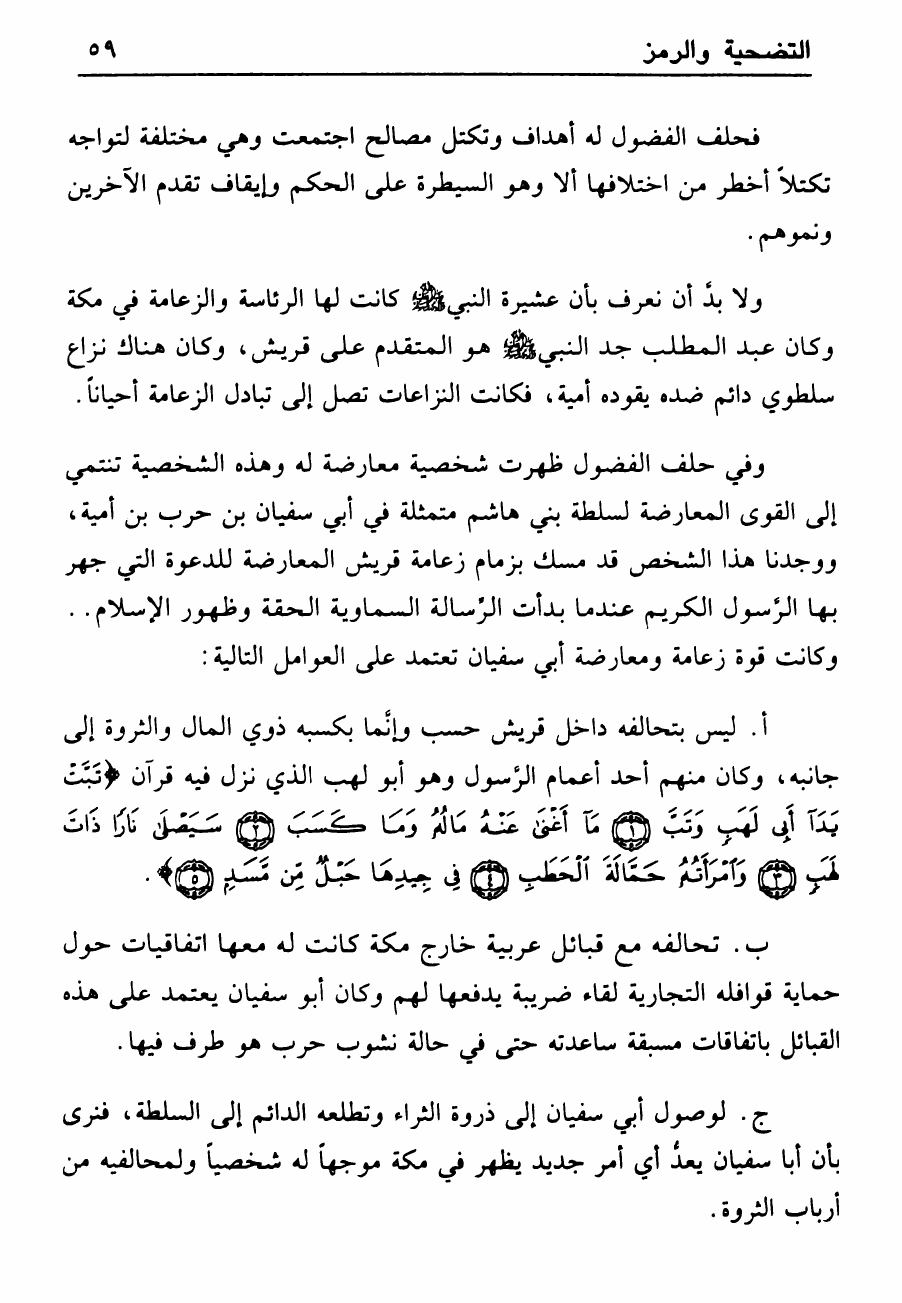 التضحية والرمز ٥٩
فحلف الفضول له أهداف وتكتل مصالح اجتمعت وهي مختلفة لتواجه
تكتلاً أخطر من اختلافها ألا وهو السيطرة على الحكم وإيقاف تقدم الآخرين
ونموهم.
ولا بدَّ أن نعرف بأن عشيرة النبي ﷺ كانت لها الرئاسة والزعامة في مكة
وكان عبد المطلب جد النبي ﷺ هو المتقدم على قريش، وكان هناك نزاع
سلطوي دائم ضده يقوده أمية، فكانت النزاعات تصل إلى تبادل الزعامة أحياناً.
وفي حلف الفضول ظهرت شخصية معارضة له وهذه الشخصية تنتمي
إلى القوى المعارضة لسلطة بني هاشم متمثلة في أبي سفيان بن حرب بن أمية،
ووجدنا هذا الشخص قد مسك بزمام زعامة قريش المعارضة للدعوة التي جهر
بها الرَّسول الكريم عندما بدأت الرِّسالة السماوية الحقة وظهور الإسلام..
وكانت قوة زعامة ومعارضة أبي سفيان تعتمد على العوامل التالية:
أ. ليس بتحالفه داخل قريش حسب وإنَّما بكسبه ذوي المال والثروة إلى
جانبه، وكان منهم أحد أعمام الرَّسول وهو أبو لهب الذي نزل فيه قرآن ﴿تَبَّتْ
يَدَآ أَبِى لَهَبٍ وَتَبَّ ﴿١﴾ مَآ أَغْنَىٰ عَنْهُ مَالُهُۥ وَمَا كَسَبَ ﴿٢﴾ سَيَصْلَىٰ نَارًا ذَاتَ
لَهَبٍ ﴿٣﴾ وَٱمْرَأَتُهُۥ حَمَّالَةَ ٱلْحَطَبِ ﴿٤﴾ فِى جِيدِهَا حَبْلٌ مِّن مَّسَدٍۭ ﴿٥﴾﴾.
ب. تحالفه مع قبائل عربية خارج مكة كانت له معها اتفاقيات حول
حماية قوافله التجارية لقاء ضريبة يدفعها لهم وكان أبو سفيان يعتمد على هذه
القبائل باتفاقات مسبقة ساعدته حتى في حالة نشوب حرب هو طرف فيها.
ج. لوصول أبي سفيان إلى ذروة الثراء وتطلعه الدائم إلى السلطة، فنرى
بأن أبا سفيان يعدُّ أي أمر جديد يظهر في مكة موجهاً له شخصياً ولمحالفيه من
أرباب الثروة.